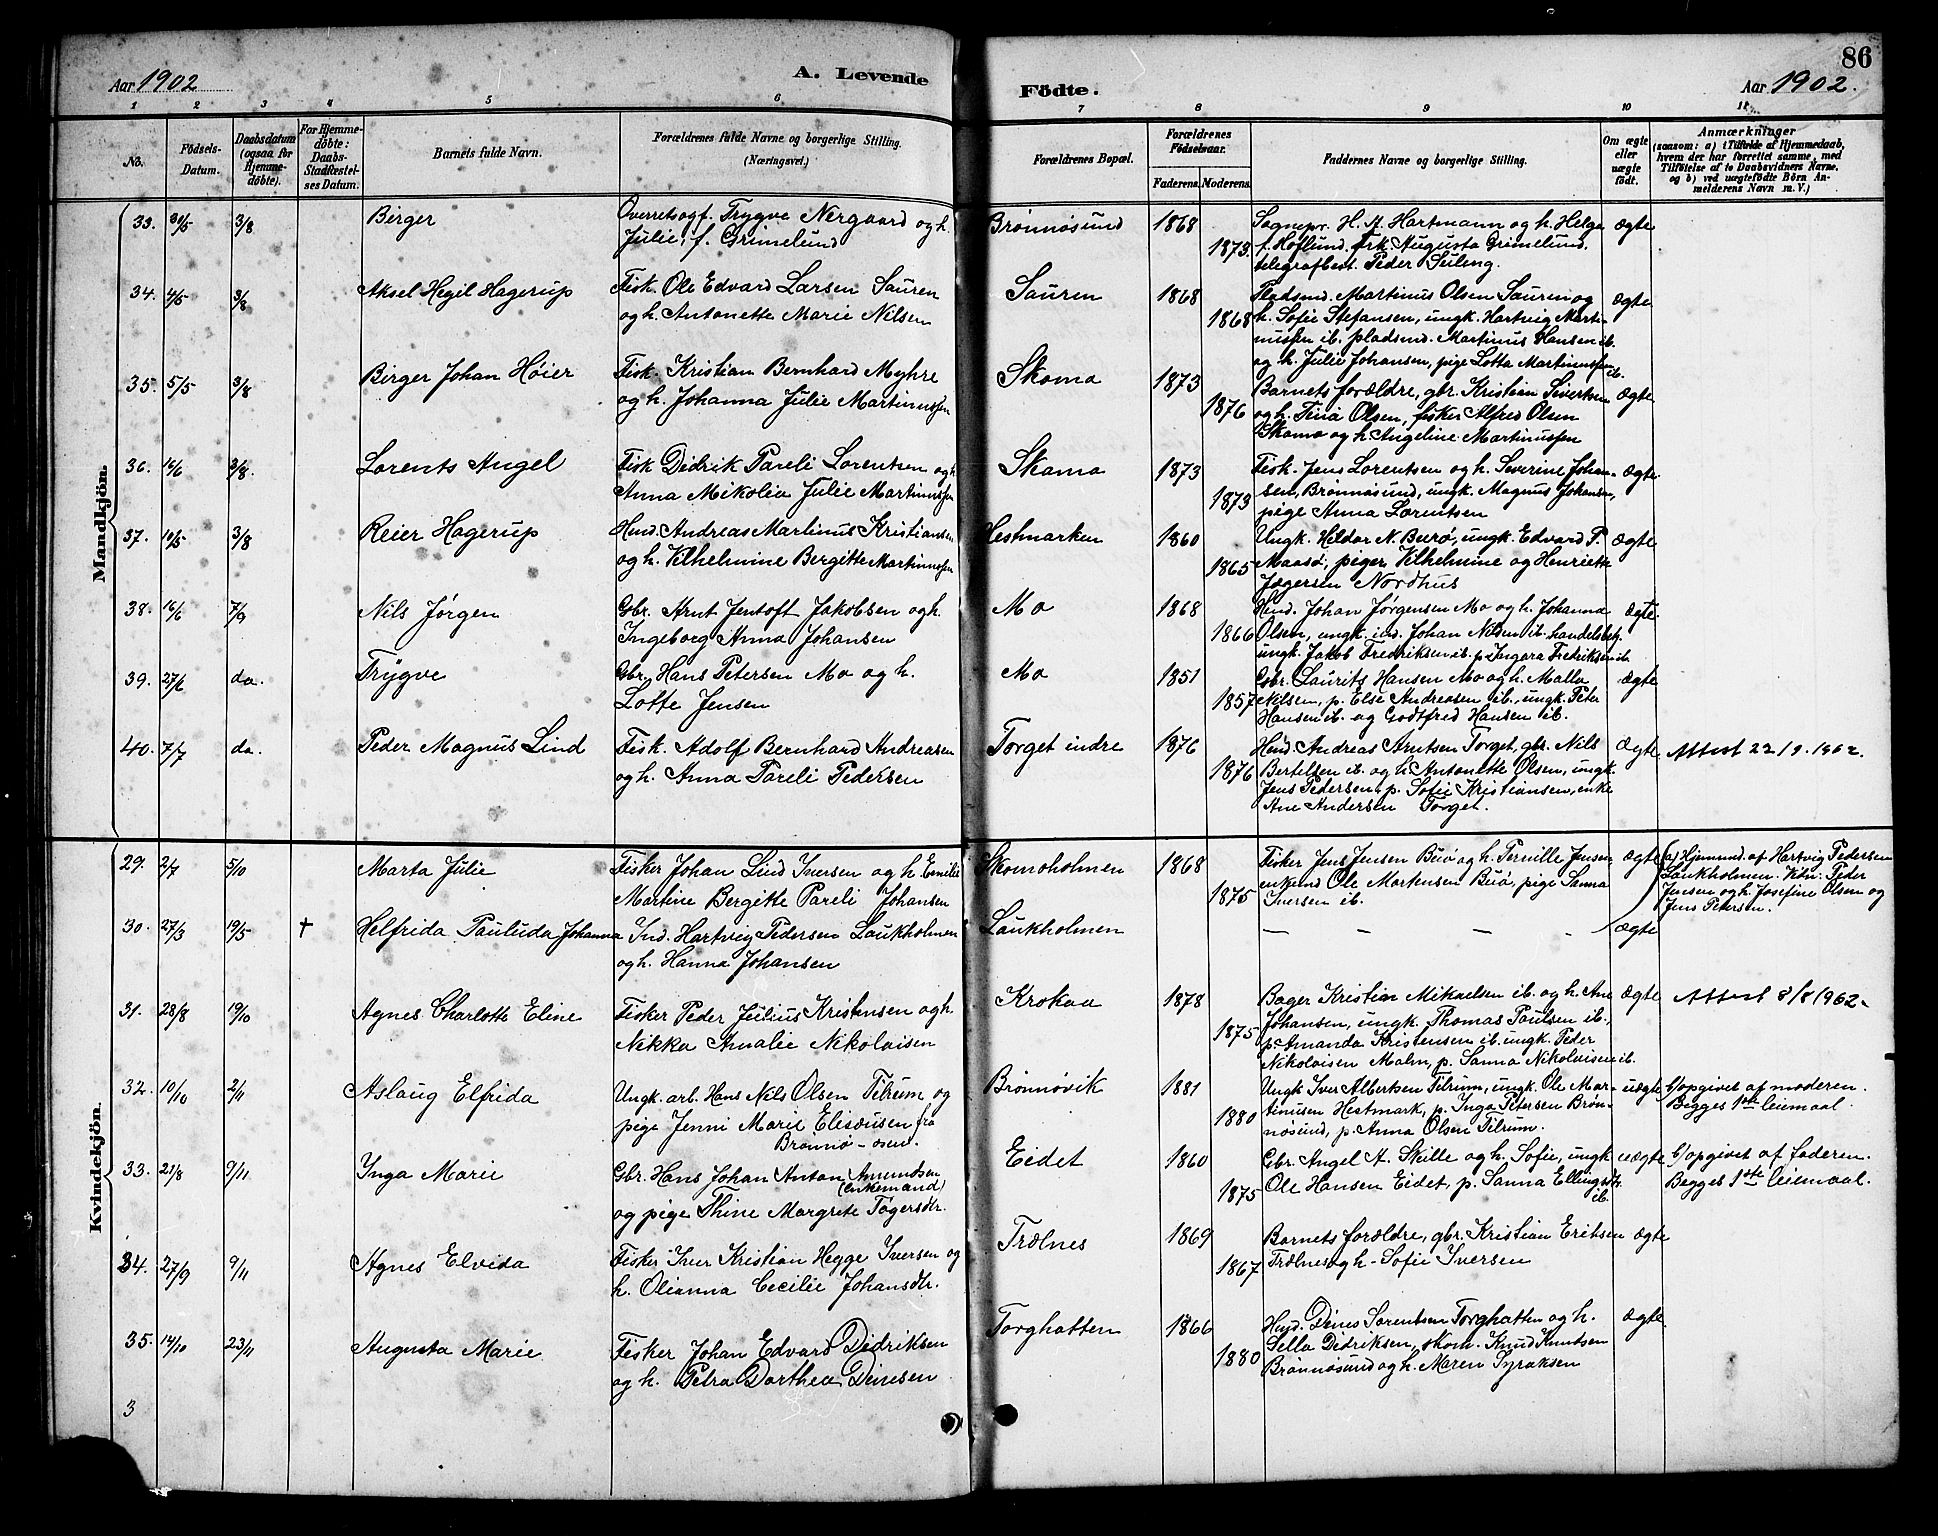 Aar 1902
A. Levende
Födte.
86
Aar 1902.
1 2 3 4 5 6 7 8 9 10 11
No.
Födsels-Datum.
Daabsdatum (ogsaa for Hjemme-döbte).
For Hjemme-döbte: Daabs-Stadfæstel-ses Datum.
Barnets fulde Navn.
Forældrenes fulde Navne og borgerlige Stilling. (Næringsvei.)
Forældrenes Bopæl.
Forældrenes Födselsaar.
Faderens. Moderens.
Faddernes Navne og borgerlige Stilling.
Om ægte eller uægte födt.
Anmærkninger
(saasom: a) i Tilfælde af Hjemmedaab,
hvem der har forrettet samme, med
Tilföielse af to Daabsvidners Navne,
og b) ved uægtefödte Börn An-
melderens Navn m. V.)
Mandkjön.
33. 30/5 3/8 Birger
Overretssagf. Trygve Nergaard og h.
Julie, f. Grimelund
Brønnøsund 1868 1873.
Sognepr. H. A. Hartmann og h. Helga
f. Høflund. Frk. Augusta Grimelund.
telegrafbest. Peder Suleng.
ægte
34. 4/5 3/8 Aksel Hegil Hagerup
Fisk. Ole Edvard Larsen Sauren
og h. Antonette Marie Nilsen
Sauren 1868 1868
Pladsmd. Martinus Olsen Sauren og
h. Sofie Stefansen, ungk. Hartvig Marti-
nussen ib. pladsmd. Martinus Hansen ib.
og h. Julie Johansen, pige Lotta Martinussen ib.
ægte
35. 5/5 3/8 Birger Johan Høier
Fisk. Kristian Bernhard Myhre
og h. Johanna Julie Martinussen
Skomo 1873 1876
Barnets forældre, gbr. Kristian Sivertsen
og h. Tina Olsen, fisker Alfred Olsen
Skomo og h. Angeline Martinussen
ægte
36. 14/6 3/8. Lorents Angel
Fisk. Didrik Pareli Lorentsen og h
Anna Mikolia Julie Martinussen
Skomo 1873 1873
Fisk. Jens Lorentsen og h. Severine Johan-
sen, Brønnøsund, ungk. Magnus Johansen,
pige Anna Lorentsen
ægte
37. 10/5 3/8 Reier Hagerup
Husmd. Andreas Martinus Kristiansen
og h. Vilhelmine Bergitte Martinussen
Hestmarken 1860 1865
Ungk. Heldor N. Burø, ungk. Edvard P.
Maasø, piger Vilhelmine og Henriette
Jægersen Nordhus
ægte
38. 16/6 7/9 Nils Jørgen
Gbr. Arnt Jentoft Jakobsen og h.
Ingeborg Anna Johansen
Mo 1868 1866
Husmd. Johan Jørgensen Mo og h. Johanna
Olsen, ungk. ind. Johan Nilsen ib. handelsbetj.
ungk. Jakob Fredriksen ib. p. Ingara Fredriksen ib.
ægte.
39. 27/6 do. Trygve
Gbr. Hans Petersen Mo og h.
Lotte Jensen
Mo 1851 1857
Gbr. Laurits Hansen Mo og h. Malla
Nilsen, p. Else Andreasen ib., ungk. Peter
Hansen ib. og Godtfred Hansen ib.
ægte
40. 7/7 do. Peder Magnus Lind
Fisk. Adolf Bernhard Andreasen
og h. Anna Pareli Pedersen
Torget indre 1876 1876
Husmd. Andreas Arntsen Torget, gbr. Nils
Bertelsen ib. og h. Antonette Olsen, ungk.
Jens Pedersen, p. Sofie Kristiansen, enke
Ane Andersen Torget.
ægte
Attest 22/9. 1962.
Kvindekjön.
29. 2/7 5/10 Marta Julie
Fisker Johan Lind Iversen og h. Emilie
Martine Bergitte Pareli Johansen
Skomoholmen 1868 1875
Fisker Jens Jensen Buø og h. Pernille Jensen
enkemd Ole Mortensen Buø, pige Sanna
Iversen ib.
ægte
a) Hjemmed. af Hartvig Pedersen
Laukholmen. Vidn: Peder
Jensen og h. Josefine Olsen og
Jens Petersen.
30. 27/3 19/5 † Helfrida Pauluda Johanna
Ind. Hartvig Pedersen Laukholmen
og h. Hanna Johansen
Laukholmen
— — — —
ægte
31. 28/8 19/10 Agnes Charlotte Eline
Fisker Peder Julius Kristensen og h.
Nikka Amalie Nikolaisen
Krokaa 1878 1875
Bager Kristian Mikaelsen ib. og h. Ane
Johansen, ungk. Thomas Paulsen ib.,
p. Amanda Kristensen ib. ungk. Peder
Nikolaisen Malm, p. Sanna Nikolaisen ib.
ægte
Attest 8/8 1962.
32. 10/10 2/11 Aslaug Elfrida
Ungk. arb. Hans Nils Olsen Tilrum og
pige Jenni Marie Elisæusen fra
Brønnø-osund.
Brønnøvik 1881 1880
Ungk Iver Albertsen Tilrum, ungk. Ole Mar-
tinusen Hestmark, p. Inga Petersen Brøn-
nøsund, p. Anna Olsen Tilrum.
uægte
b) opgivet af moderen.
Begges 1ste leiemaal.
33. 21/8 9/11 Inga Marie
Gbr. Hans Johan Anton Amundsen
(enkemand)
og pige Thine Margrete Tøgersdtr.
Eidet 1860 1875
Gbr. Angel A. Skille og h. Sofie, ungk
Ole Hansen Eidet, p. Sanna Ellingsdtr. ib.
uægte
b) opgivet af faderen.
Begges 1ste leiemaal.
34. 27/9 9/11 Agnes Elvida
Fisker Iver Kristian Hegge Iversen og
h. Olianna Cecilie Johansdtr.
Trælnes 1869 1867
Barnets forældre, gbr. Kristian Eritsen
Trælnes og h. Sofie Iversen
ægte
35. 14/10 23/11 Augusta Marie
Fisker Johan Edvard Didriksen
og h. Petra Dorthea Dinesen
Torghatten 1866 1880
Husmd. Dines Sørentsen Torghatten og h.
Sella Didriksen, skom. Knud Knutsen
Brønnøsund og h. Maren Syraksen
ægte
3